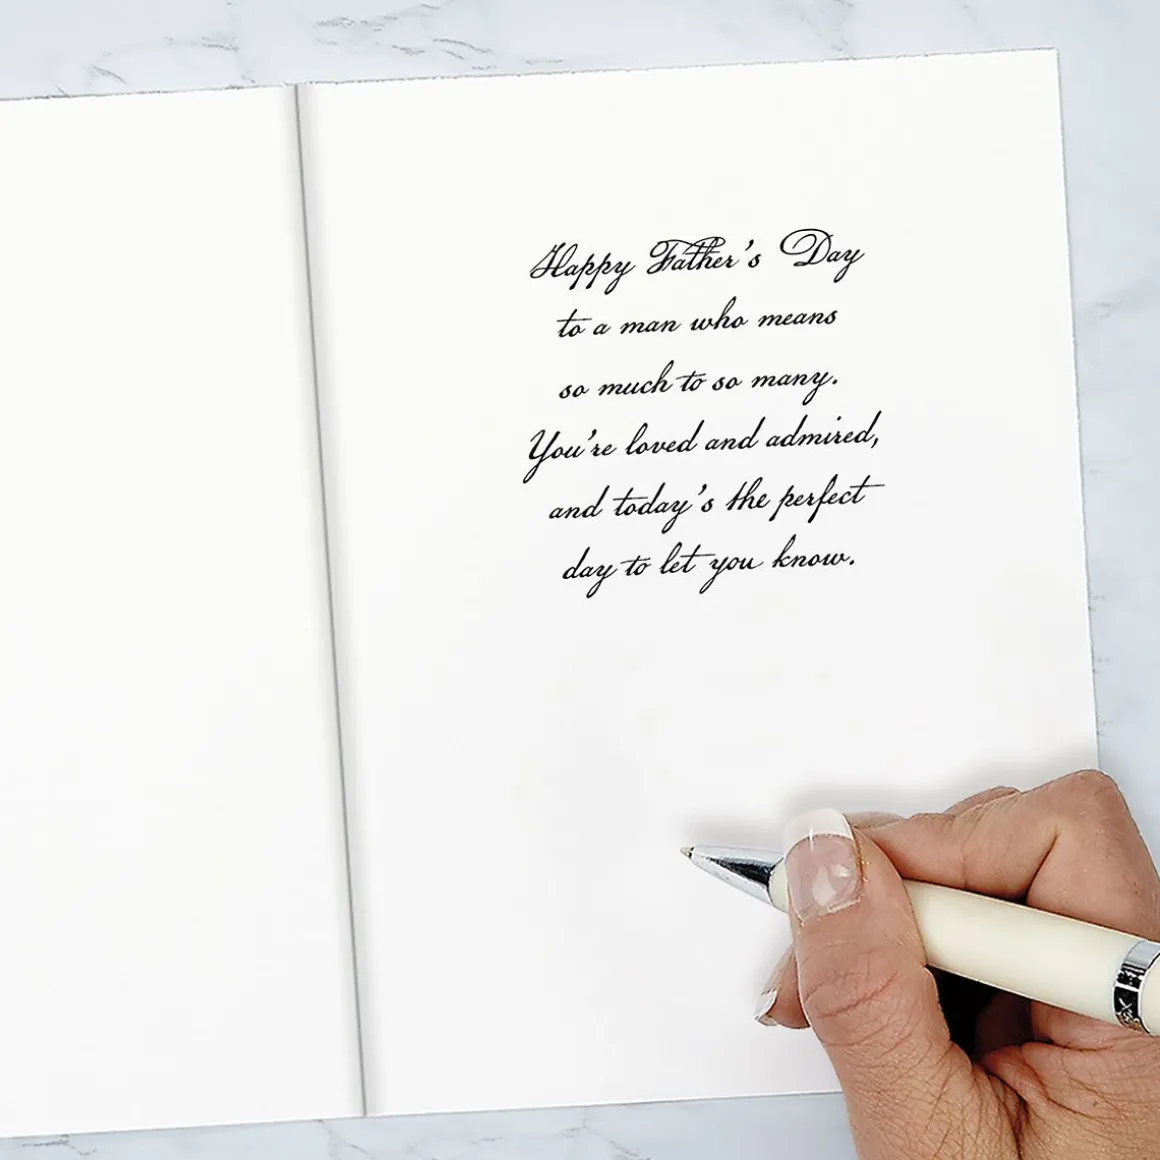 Happy Father's Day
to a man who means
so much to so many.
You're loved and admired,
and today's the perfect
day to let you know.